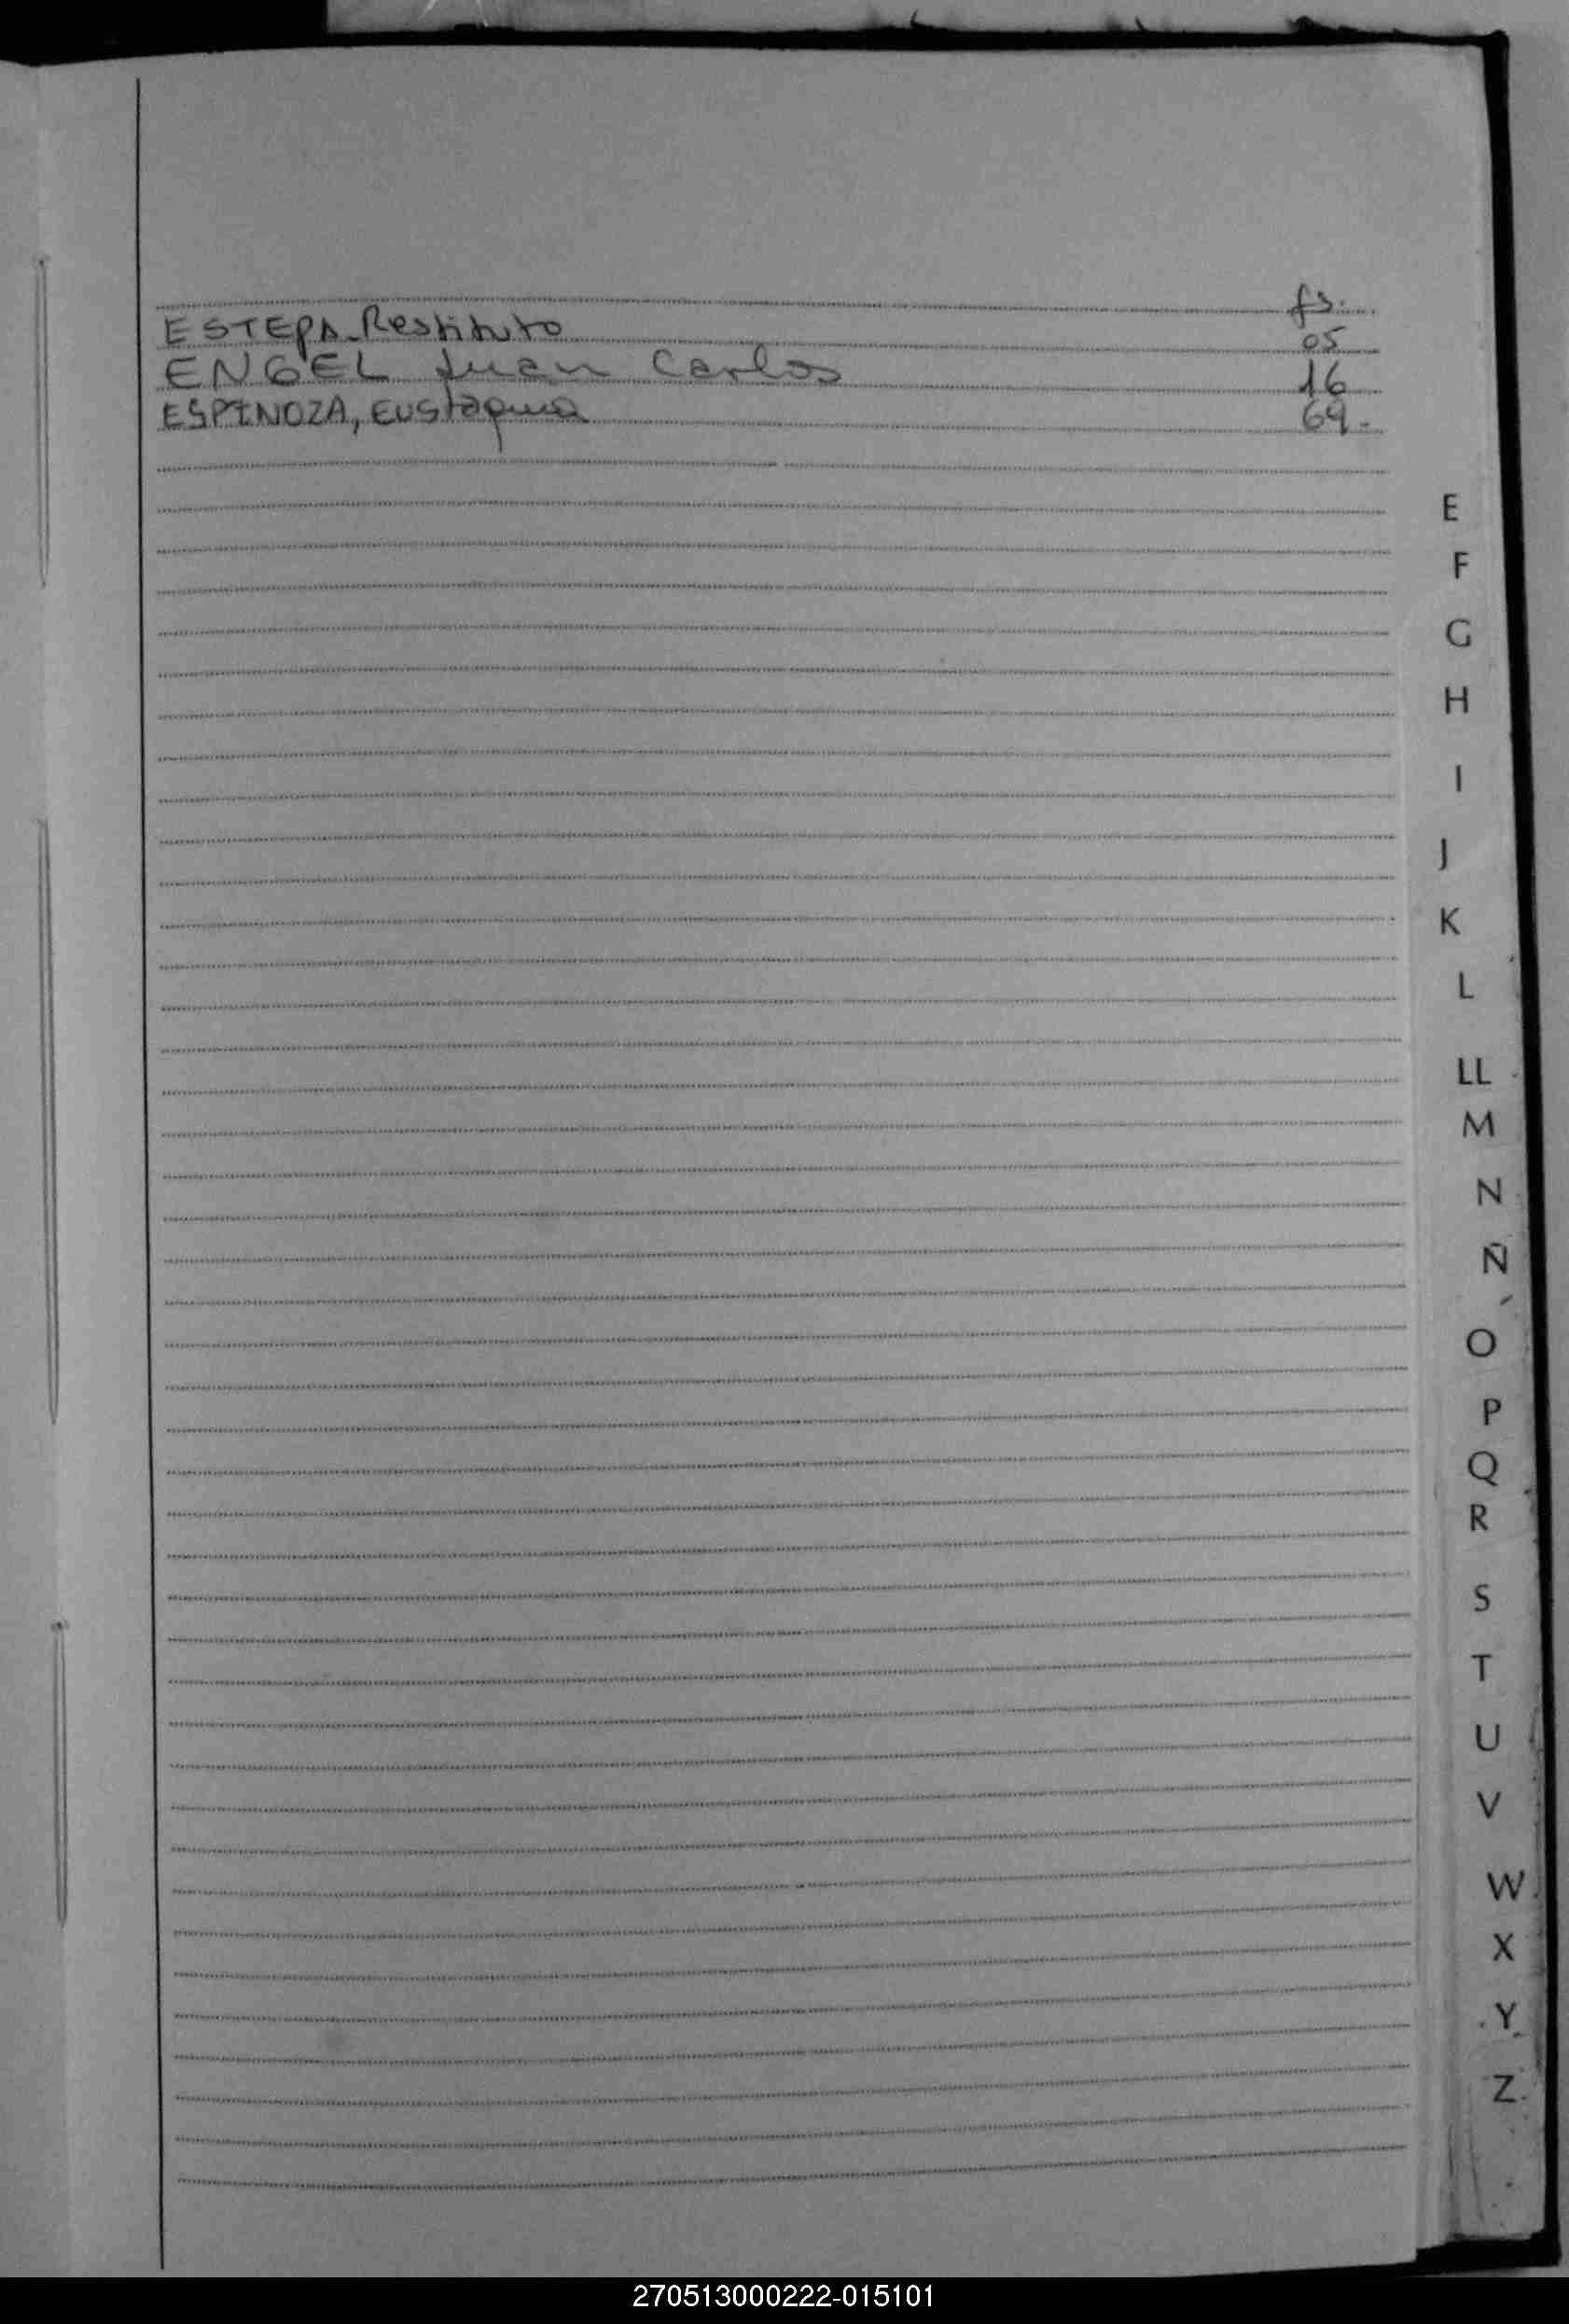 fs.
ESTEPA Restituto 05
ENGEL Juan Carlos 16
ESPINOZA, Eustaquia 69.
E
F
G
H
I
J
K
L
LL
M
N
Ñ
O
P
Q
R
S
T
U
V
W
X
Y
Z
270513000222-015101